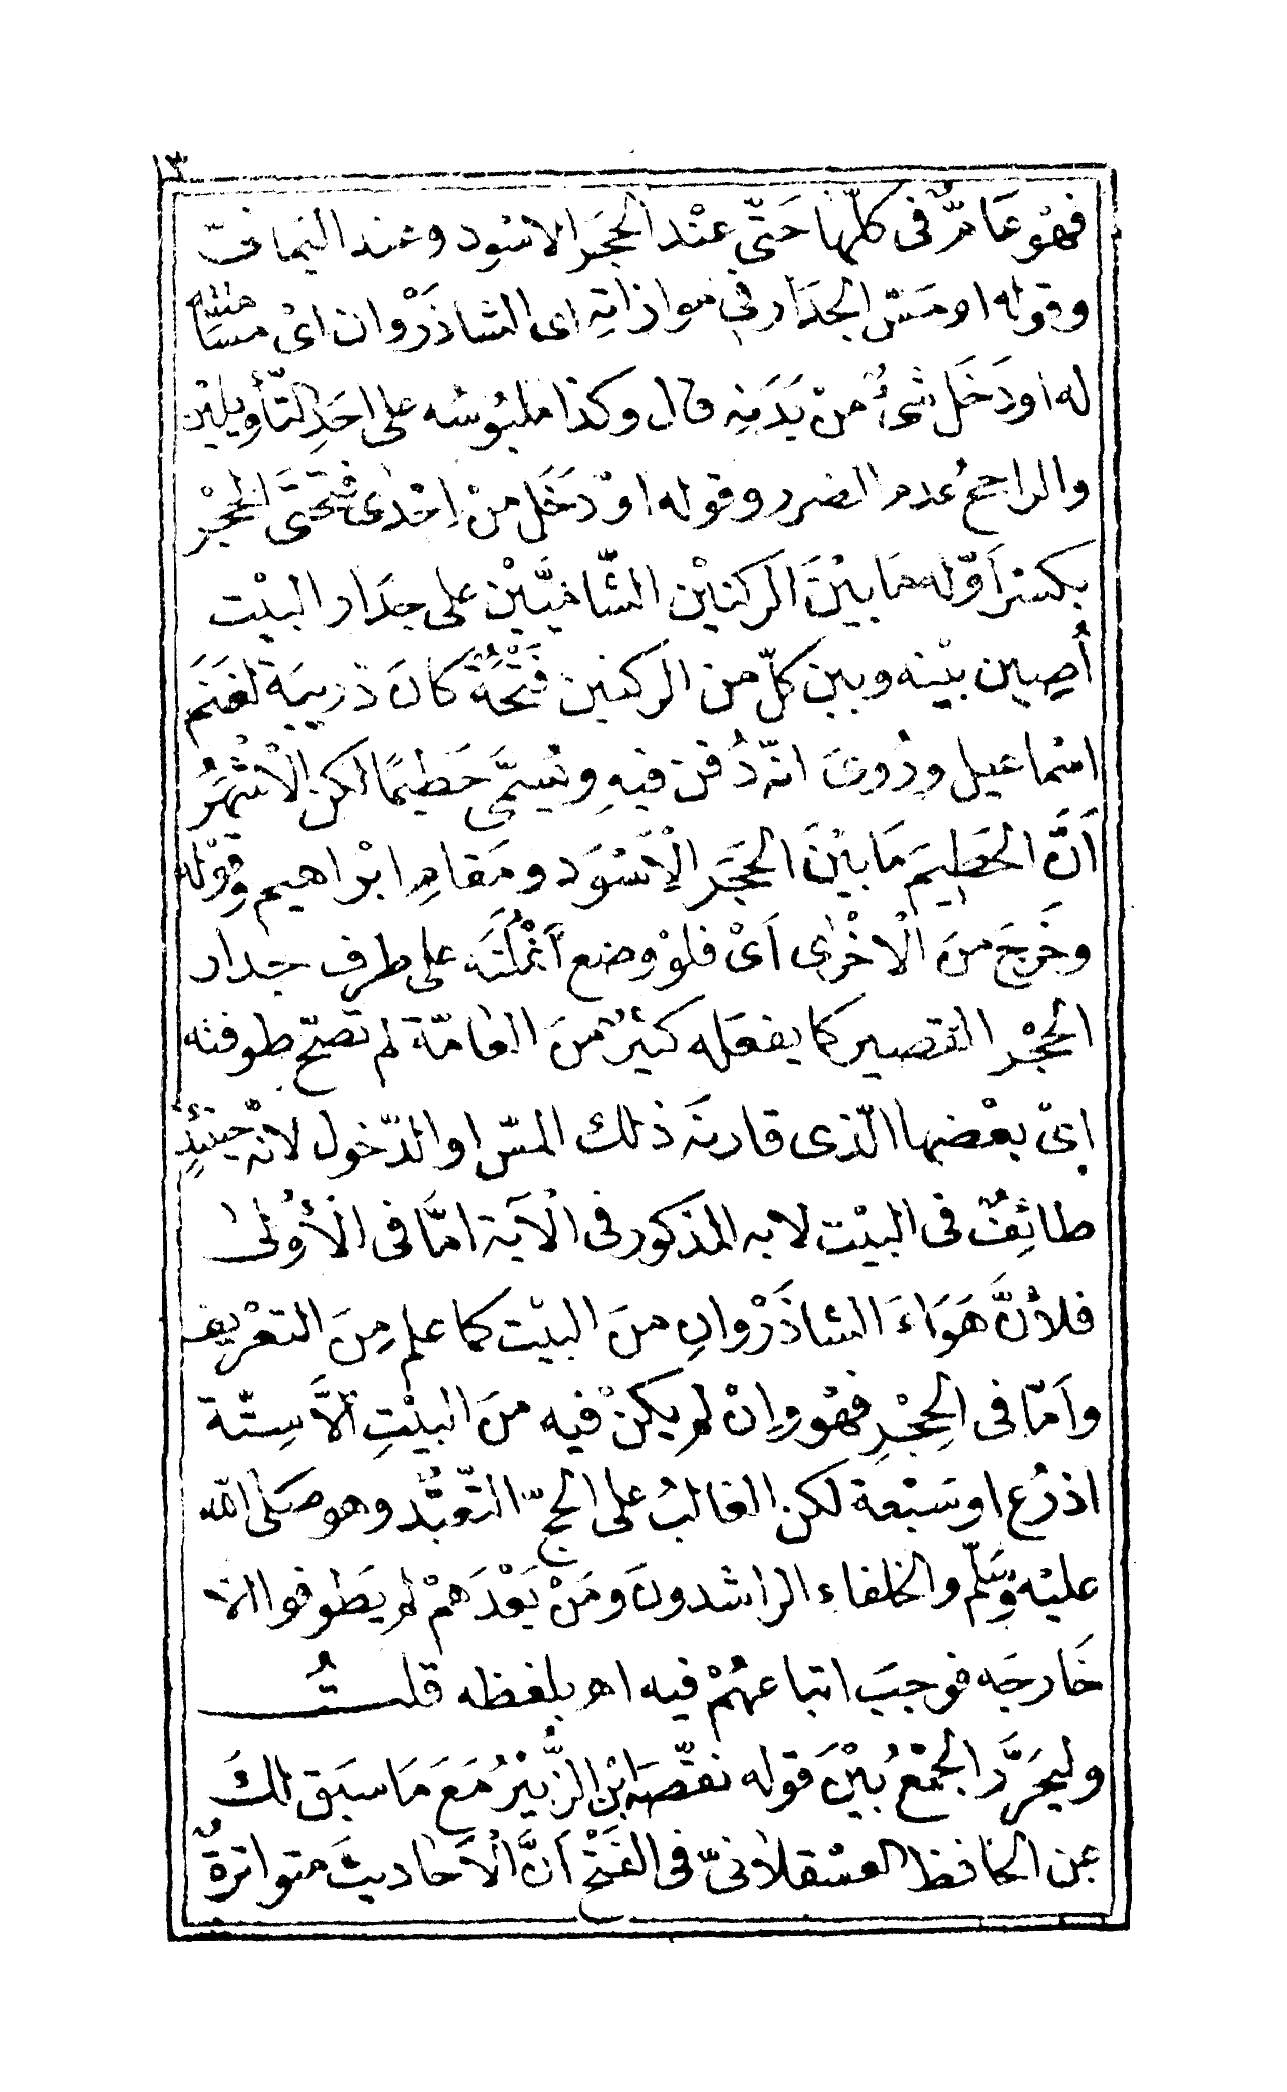 ١٣
فهْو عَامّ فى كلّها حَتّى عنْد الحجَر الاسْود وعند اليَمانىّ
وقوله او مَسّ الجدَار فى موازاتِه اى الشاذَرْوان اىْ مسَّامته
له او دَخَل شئٌ منْ بَدَنِه قال وكذا ملبُوسُه على احَدِ التّأويلين
والراجحُ عدم الضرر وقوله اوْ دَخَل منْ اِحْدى فتْحَتَى الحِجْر
بكسْر اَوّله مَا بيْنَ الركنيْن الشّاميَّيْن على جدَار البيْت
أُصِين بيْنه وبين كلّ من الركنين فَتْحَةٌ كانَ ذريبَة لغنَم
اسْماعيل ورُوىَ انّه دُفن فيهِ ويُسَمَّى حَطيمًا لكن الْاشْهَرُ
اَنَّ الحَطِيمَ مَا بيْنَ الحَجَر الْاَسْوَد ومَقامِ ابْراهيم وقوْله
وخَرجَ منَ الْاخْرٰى اَىْ فلوْ وضع اَنْمُلَتَه على طرف جدار
الحجْر القصير كما يفعَله كثيرٌ منَ العٰامّة لم تصحّ طوفته
اىْ بعْضها الّذى قارنَه ذلك المسّ او الدّخول لانّه حينئذٍ
طائِفٌ فى البيْت لا به المذكور فى الْاَية امَّا فى الْأُوْلىٰ
فلأنَّ هَوَاءَ الشاذَرْوانِ منَ البيْت كما علم مِنَ التعْريف
واَمّا فى الحِجْرِ فهْو واِنْ لم يكنْ فيه منَ البيْتِ الاَّ سِتّة
اذرُع او سَبْعة لكن الغالبُ على الحجّ التّعبُّد وهو صَلى الله
عليْه وسَلّم والخلفاء الراشدونَ ومَنْ بَعْدَهمْ لم يطَوفوا الاّ
خَارجَه فوجبَ اتباعهُمْ فيه اهـ بلفظه قلــتُ
وليحَرَّر الجمْعُ بيْنَ قوله نقّصَه ابْن الزُّبيْرُ مَعَ مَا سبَق لكَ
عن الحافظ العسْقلانىّ فى الفتْح اَنَّ الْاَحَاديثَ متواترةٌ